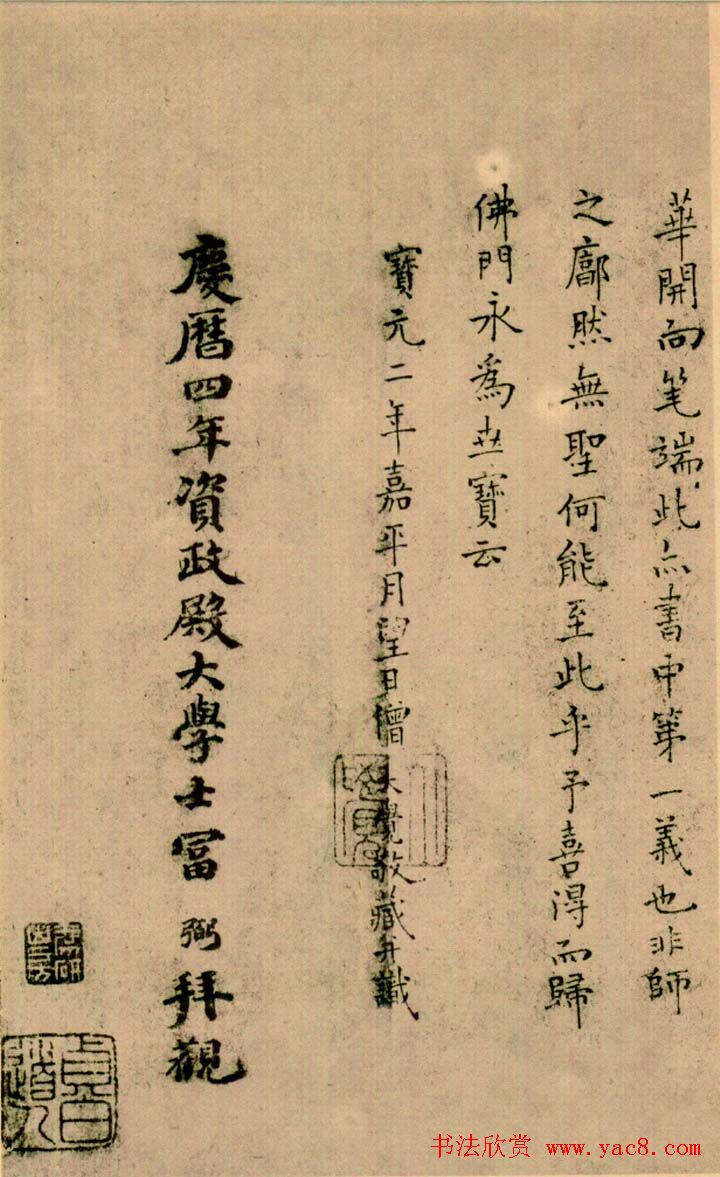 華開向笔端此亦書中第一義也非師
之廓然無聖何能至此乎予喜得而歸
佛門永為世寶云
寶元二年嘉平月望日僧大覺敬藏并識
慶曆四年資政殿大學士冨弼拜觀
书法欣赏 www.yac8.com